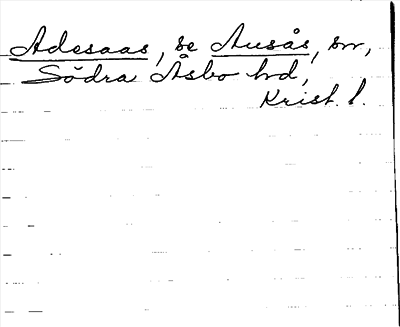 Adesaas, se Ausås, sn,
Södra Åsbo hd,
Krist. l.